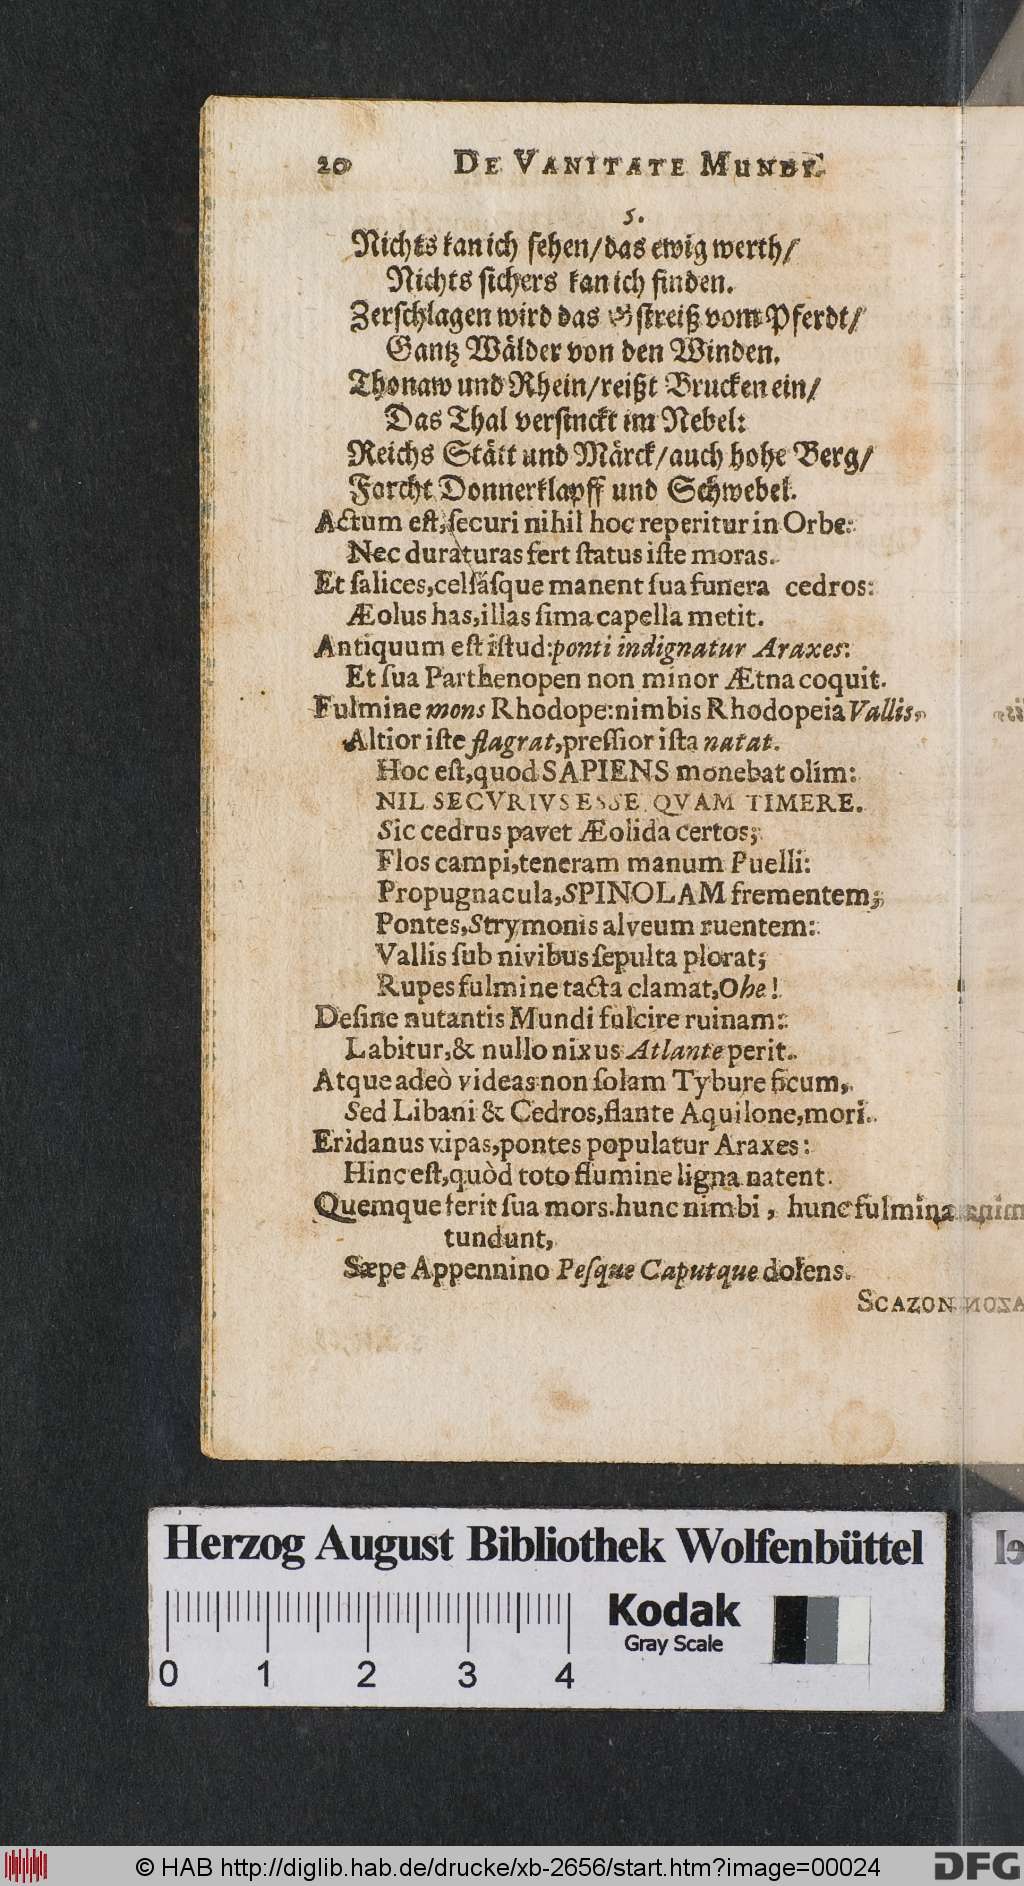 20 DE VANITATE MUNDI.
5.
Nichts kan ich sehen/das ewig werth/
Nichts sichers kan ich finden.
Zerschlagen wird das Gstreiß vom Pferdt/
Gantz Wälder von den Winden.
Thonaw und Rhein/reißt Brucken ein/
Das Thal versinckt im Nebel:
Reichs Stätt und Märck/auch hohe Berg/
Forcht Donnerklapff und Schwebel.
Actum est, securi nihil hoc reperitur in Orbe:
Nec duraturas fert status iste moras.
Et salices, celsásque manent sua funera cedros:
Æolus has, illas sima capella metit.
Antiquum est istud: ponti indignatur Araxes:
Et sua Parthenopen non minor Ætna coquit.
Fulmine mons Rhodope: nimbis Rhodopeia Vallis,
Altior iste flagrat, pressior ista natat.
Hoc est, quod SAPIENS monebat olim:
NIL SECVRIVS ESSE QVAM TIMERE.
Sic cedrus pavet Æolida certos;
Flos campi, teneram manum Puelli:
Propugnacula, SPINOLAM frementem;
Pontes, Strymonis alveum ruentem:
Vallis sub nivibus sepulta plorat;
Rupes fulmine tacta clamat, Ohe!
Desine nutantis Mundi fulcire ruinam:
Labitur, & nullo nixus Atlante perit.
Atque adeò videas non solam Tybure ficum,
Sed Libani & Cedros, flante Aquilone, mori.
Eridanus vipas, pontes populatur Araxes:
Hinc est, quòd toto flumine ligna natent.
Quemque ferit sua mors. hunc nimbi, hunc fulmina
tundunt,
Sæpe Appennino Pesque Caputque dolens.
SCAZON
Herzog August Bibliothek Wolfenbüttel
Kodak
Gray Scale
0 1 2 3 4
© HAB http://diglib.hab.de/drucke/xb-2656/start.htm?image=00024
DFG